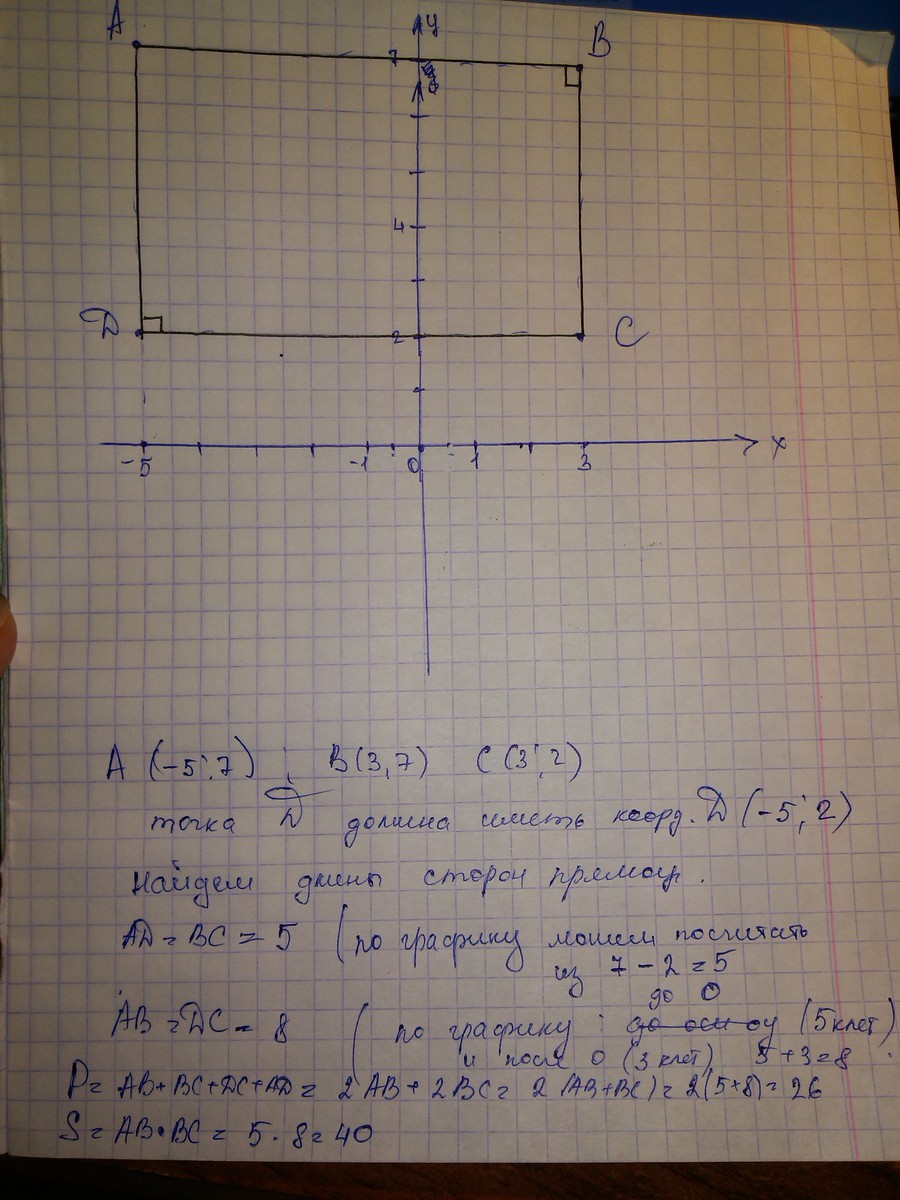 A
y
B
7
4
D
2
C
-5 -1 0 1 3 x
A (-5; 7) ; B(3,7) C(3; 2)
точка D должна иметь коорд. D (-5; 2)
Найдем длины сторон прямоуг.
AD = BC = 5 (по графику можем посчитать
из 7 - 2 = 5
до 0
AB = DC = 8 ( по графику : до оси oy (5 клет)
и после 0 (3 клет) 5 + 3 = 8
P = AB + BC + DC + AD = 2 AB + 2 BC = 2 (AB + BC) = 2(5+8) = 26
S = AB • BC = 5 · 8 = 40